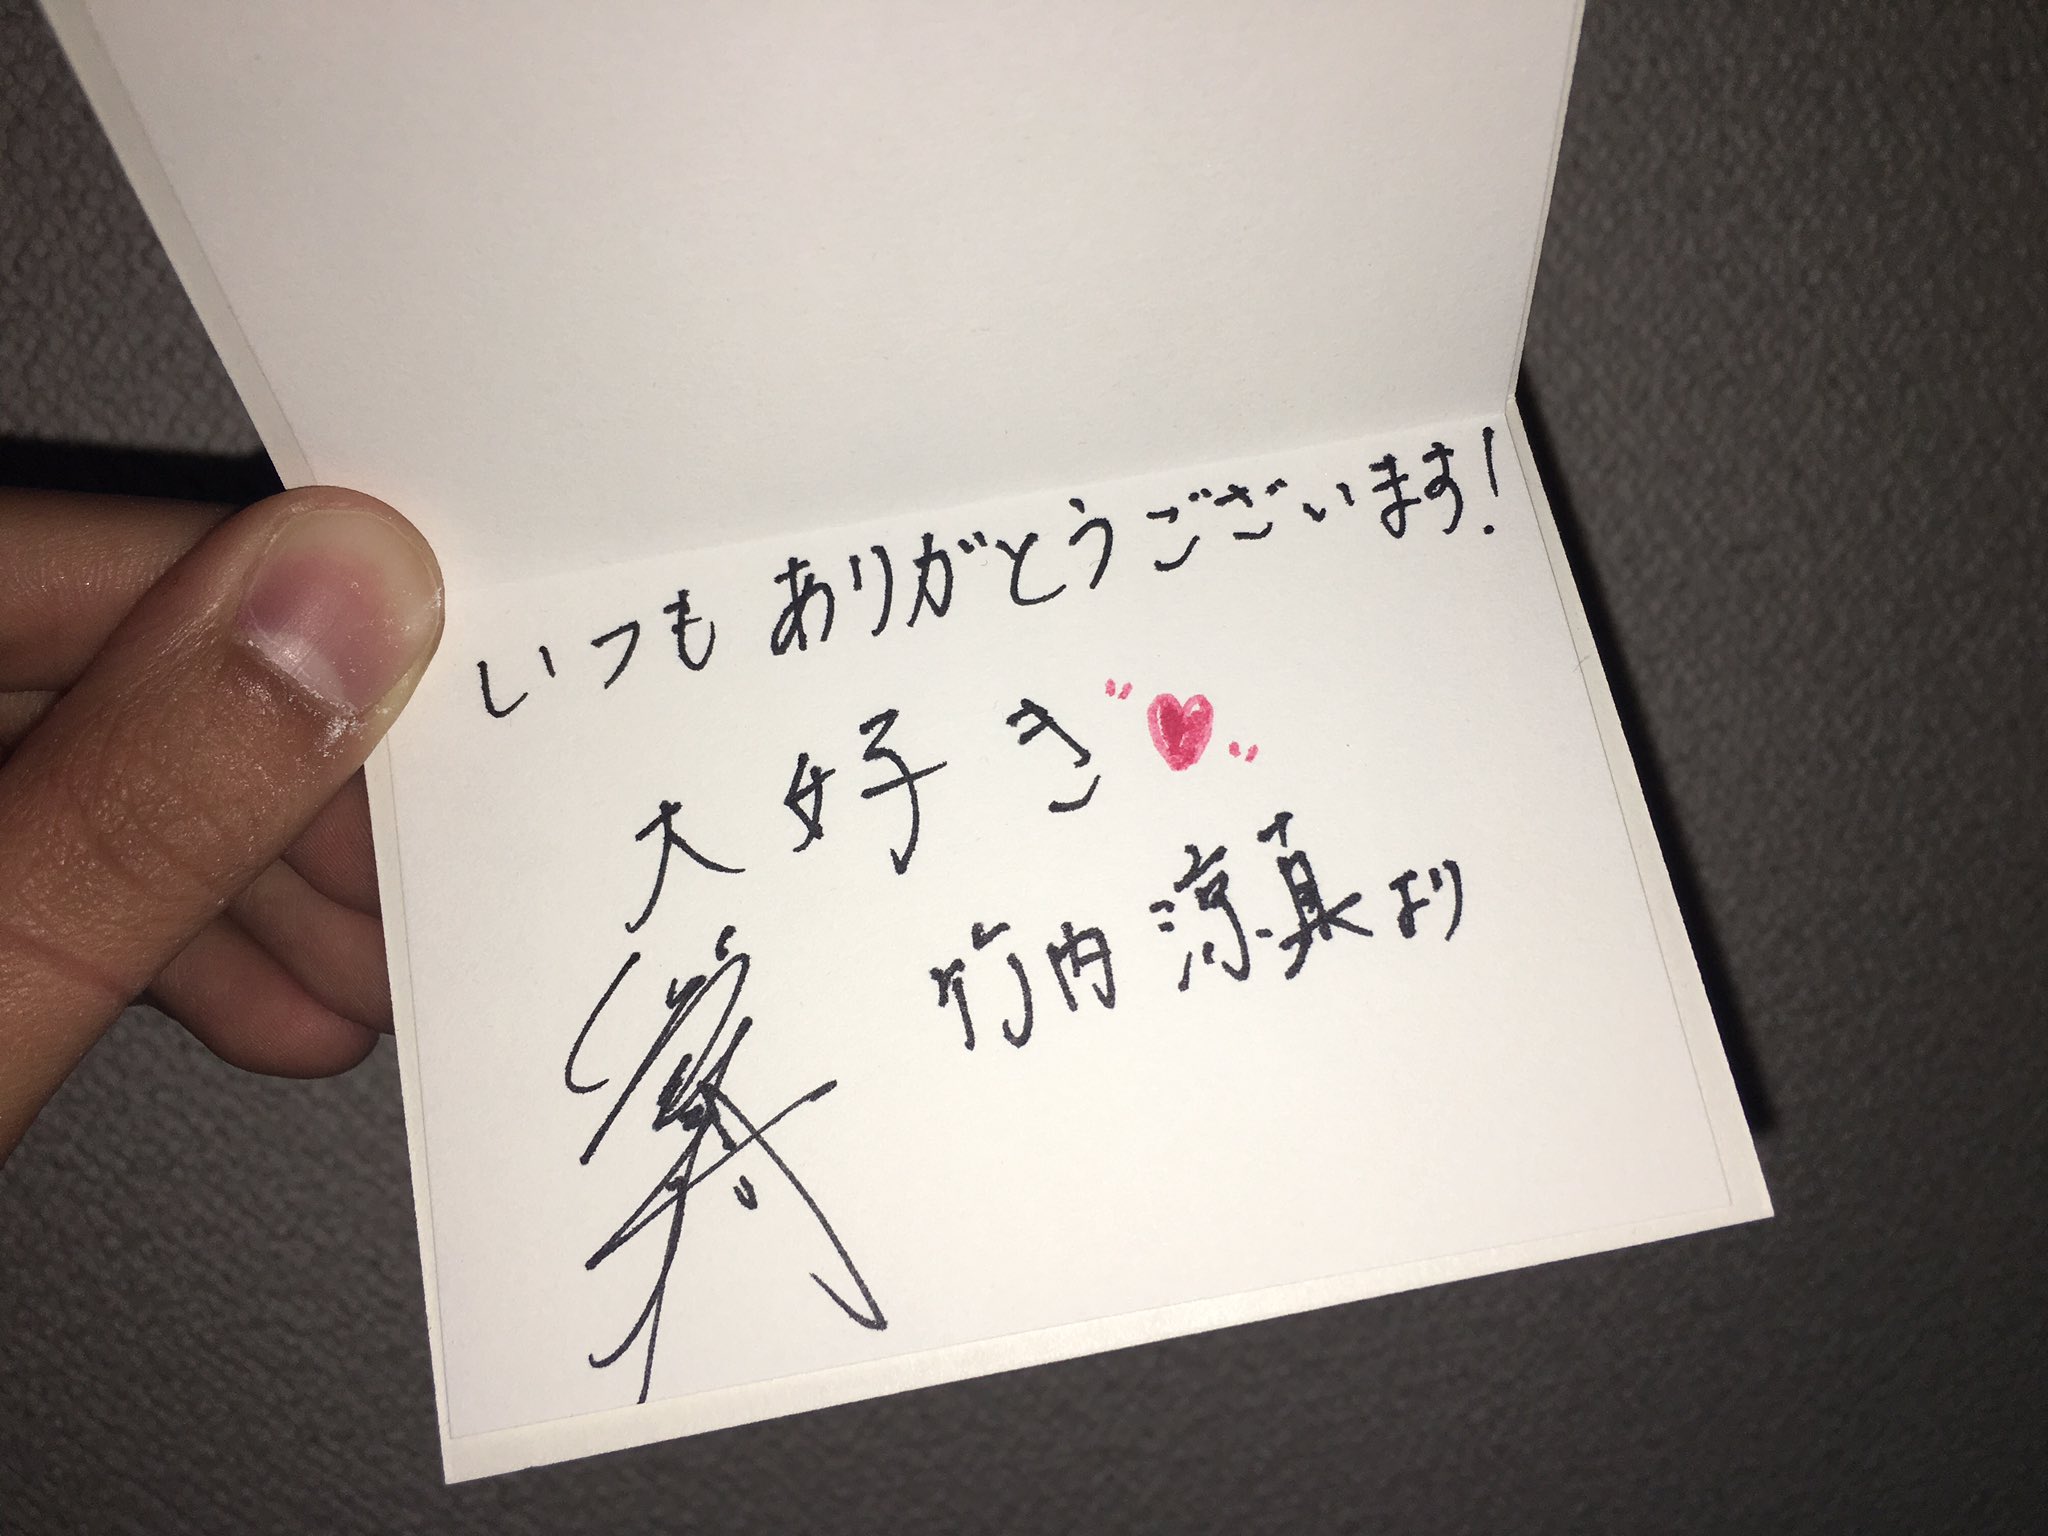 いつもありがとうございます!
大好き
竹内涼真より